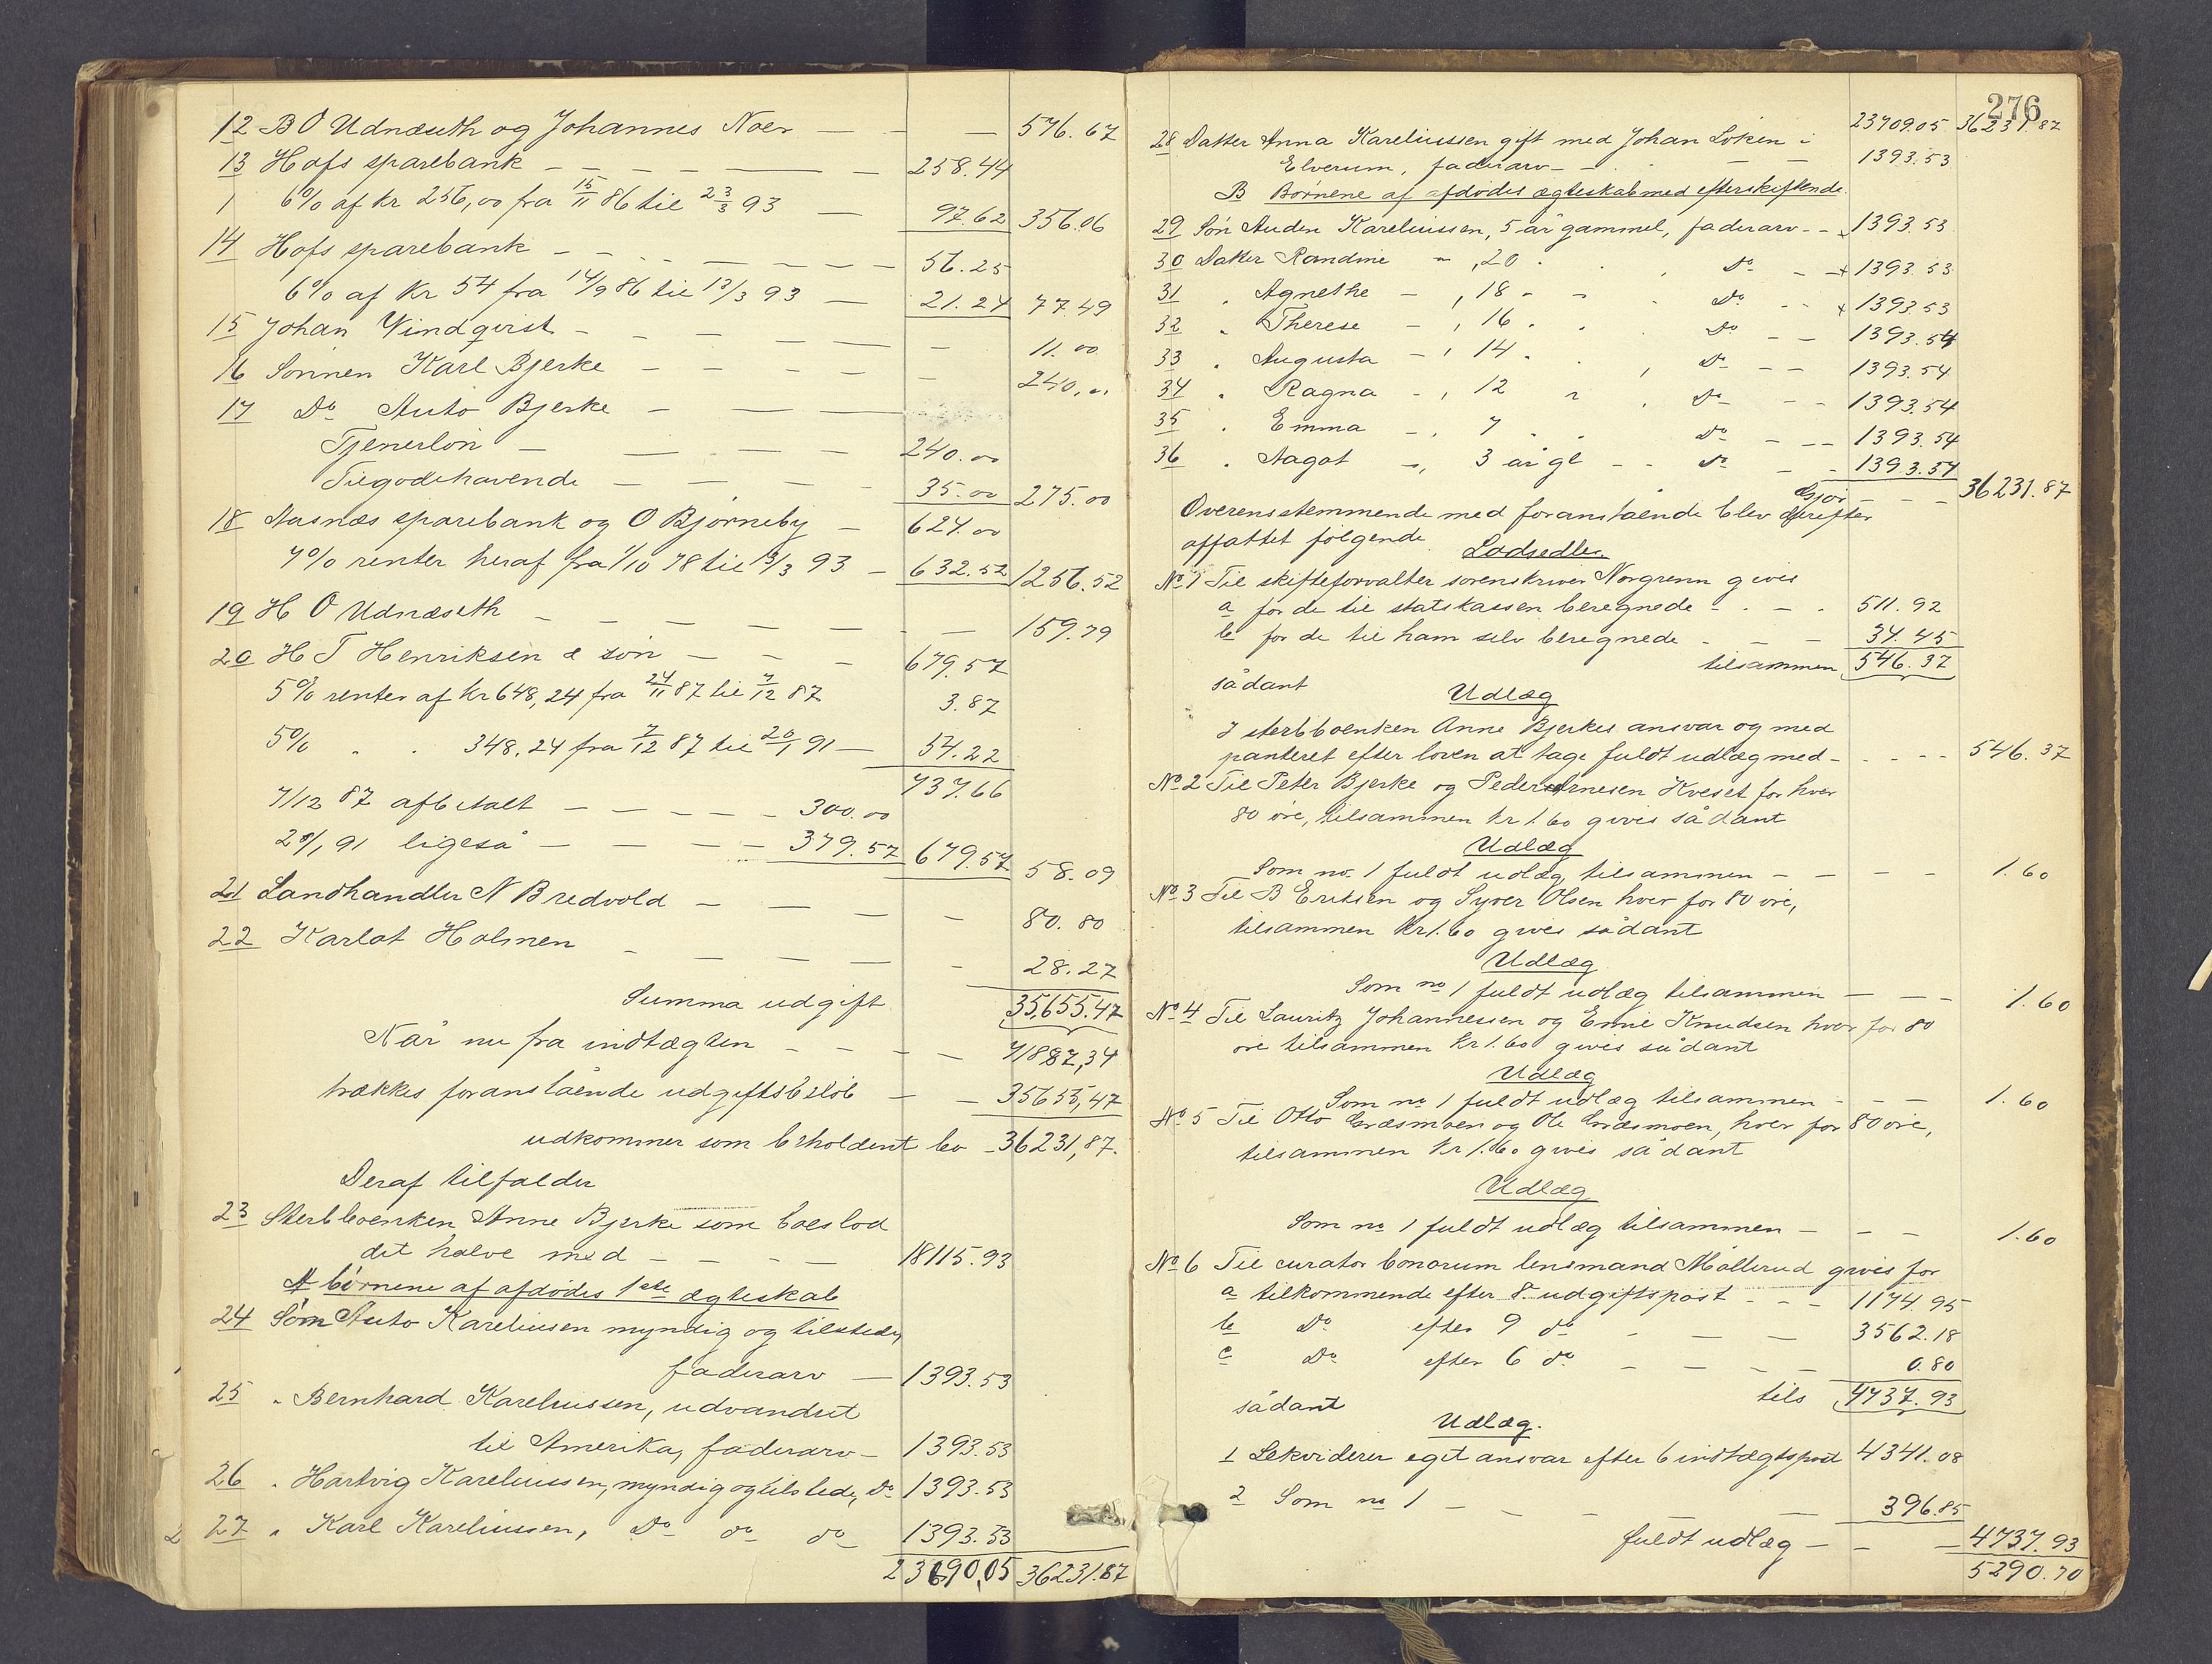 12 B O Udnæseth og Johannes Noer — — — 576.67
13 Hofs sparebank — — — — — 258.44
6% af kr 256,00 fra 15/11 86 til 23/3 93 — 97.62 356.06
14 Hofs sparebank — — — — — 56.25
6% af Kr 54 fra 14/9 86 til 13/3 93 — 21.24 77.49
15 Johan Vindqvist — — — — — 11.00
16 Sønnen Karl Bjerke — — — — — 240,00
17 Do Auto Bjerke — — —
Tjenerløn — — — — 240.00
Tilgodehavende — — — 35.00 275.00
18 Aasnæs sparebank og O Bjørneby — 624.00
7% renter heraf fra 1/10 78 til 13/3 93 — 632.52 1256.52
19 H O Udnæseth — — — — — 159.79
20 H T Henriksen & søn — — — 679.57
5% renter af kr 648,24 fra 24/11 87 til 7/12 87 3.87
5% " " 348.24 fra 7/12 87 til 20/1 91 — 54.22
737.66
7/12 87 afbetalt — — — — 300.00
20/1 91 ligeså — — — — 379.57 679.57 58.09
21 Landhandler N Bredvold — — — — 80.80
22 Karlot Holmen — — — — — 28.27
Summa udgift 35,655.47
Når nu fra indtægten — — — — 71887,34
trækkes foranstående udgiftsbeløb — — 35655,47
udkommer som beholdent bo — 36231,87.
Deraf tilfalder
23 Sterbboenken Anne Bjerke som boeslod
det halve med — — — — 18115.93
A børnene af afdødes 1ste ægteskab
24 Søn Auto Kareliusen myndig og tilstede,
faderarv — 1393.53
25 " Bernhard Kareliussen, udvandret
til Amerika, faderarv — 1393.53
26 " Hartvig Kareliussen, myndig og tilstede, Do 1393.53
27 " Karl Kareliussen, Do do do 1393.53
23690,05 36231.87
276
23709.05 36231.87
28 Datter Anna Kareliussen gift med Johan Løken i
Elverum, faderarv — — — — 1393.53
B Børnene af afdødes ægteskab med efterskiftende.
29 Søn Auden Kareliussen, 5 år gammel, faderarv — — 1393.53
30 Datter Randine — " , 20 " " , Do — — 1393.53
31 " Agnethe — , 18 " " " Do — — 1393.53
32 " Therese — , 16 " " Do — — 1393.54
33 " Augusta — , 14 " " , Do — — 1393.54
34 " Ragna — , 12 " " Do — — 1393.54
35 " Emma — , 7 " " Do — — 1393.54
36 " Aagot — , 3 år gl — — do — — 1393.54
Gjør — — — 36231.87
Overensstemmende med foranstående blev derefter
affattet følgende Lodsedler.
No 1 Til skifteforvalter sorenskriver Norgrenn gives
a for de til statskassen beregnede — — — 511.92
b for de til ham selv beregnede — — — 34.45
tilsammen 546.37
sådant
Udlæg
I sterbboenken Anne Bjerkes ansvar og med
panteret efter loven at tage fuldt udlæg med — — — — 546.37
No 2 Til Peter Bjerke og Peder Arnesen Kveset for hver
80 øre, tilsammen kr 1.60 gives sådant
Udlæg
Som no. 1 fuldt udlæg tilsammen — — — — 1.60
No 3 Til B Eriksen og Syver Olsen hver for 80 øre,
tilsammen kr 1.60 gives sådant
Udlæg
Som no 1 fuldt udlæg tilsammen — — — 1.60
No 4 Til Lauritz Johannessen og Emil Knudsen hver for 80
øre tilsammen kr 1.60 gives sådant
Udlæg
Som no 1 fuldt udlæg tilsammen — — — 1.60
No 5 Til Otto Græsmoen og Ole Græsmoen, hver for 80 øre,
tilsammen kr 1.60 gives sådant
Udlæg
Som no 1 fuldt udlæg tilsammen — — — 1.60
No 6 Til curator bonorum lensmand Møllerud gives for
a tilkommende efter 8. udgiftspost — — — 1174.95
b Do efter 9 do — — — 3562.18
c Do efter 6 do — — — — 0.80
tils 4737.93
sådant
Udlæg.
1 Lekviderer eget ansvar efter 6 indtægtspost 4341.08
2 Som no 1 — — — — — 396.85
fuldt udlæg — — — 4737.93
5290.70